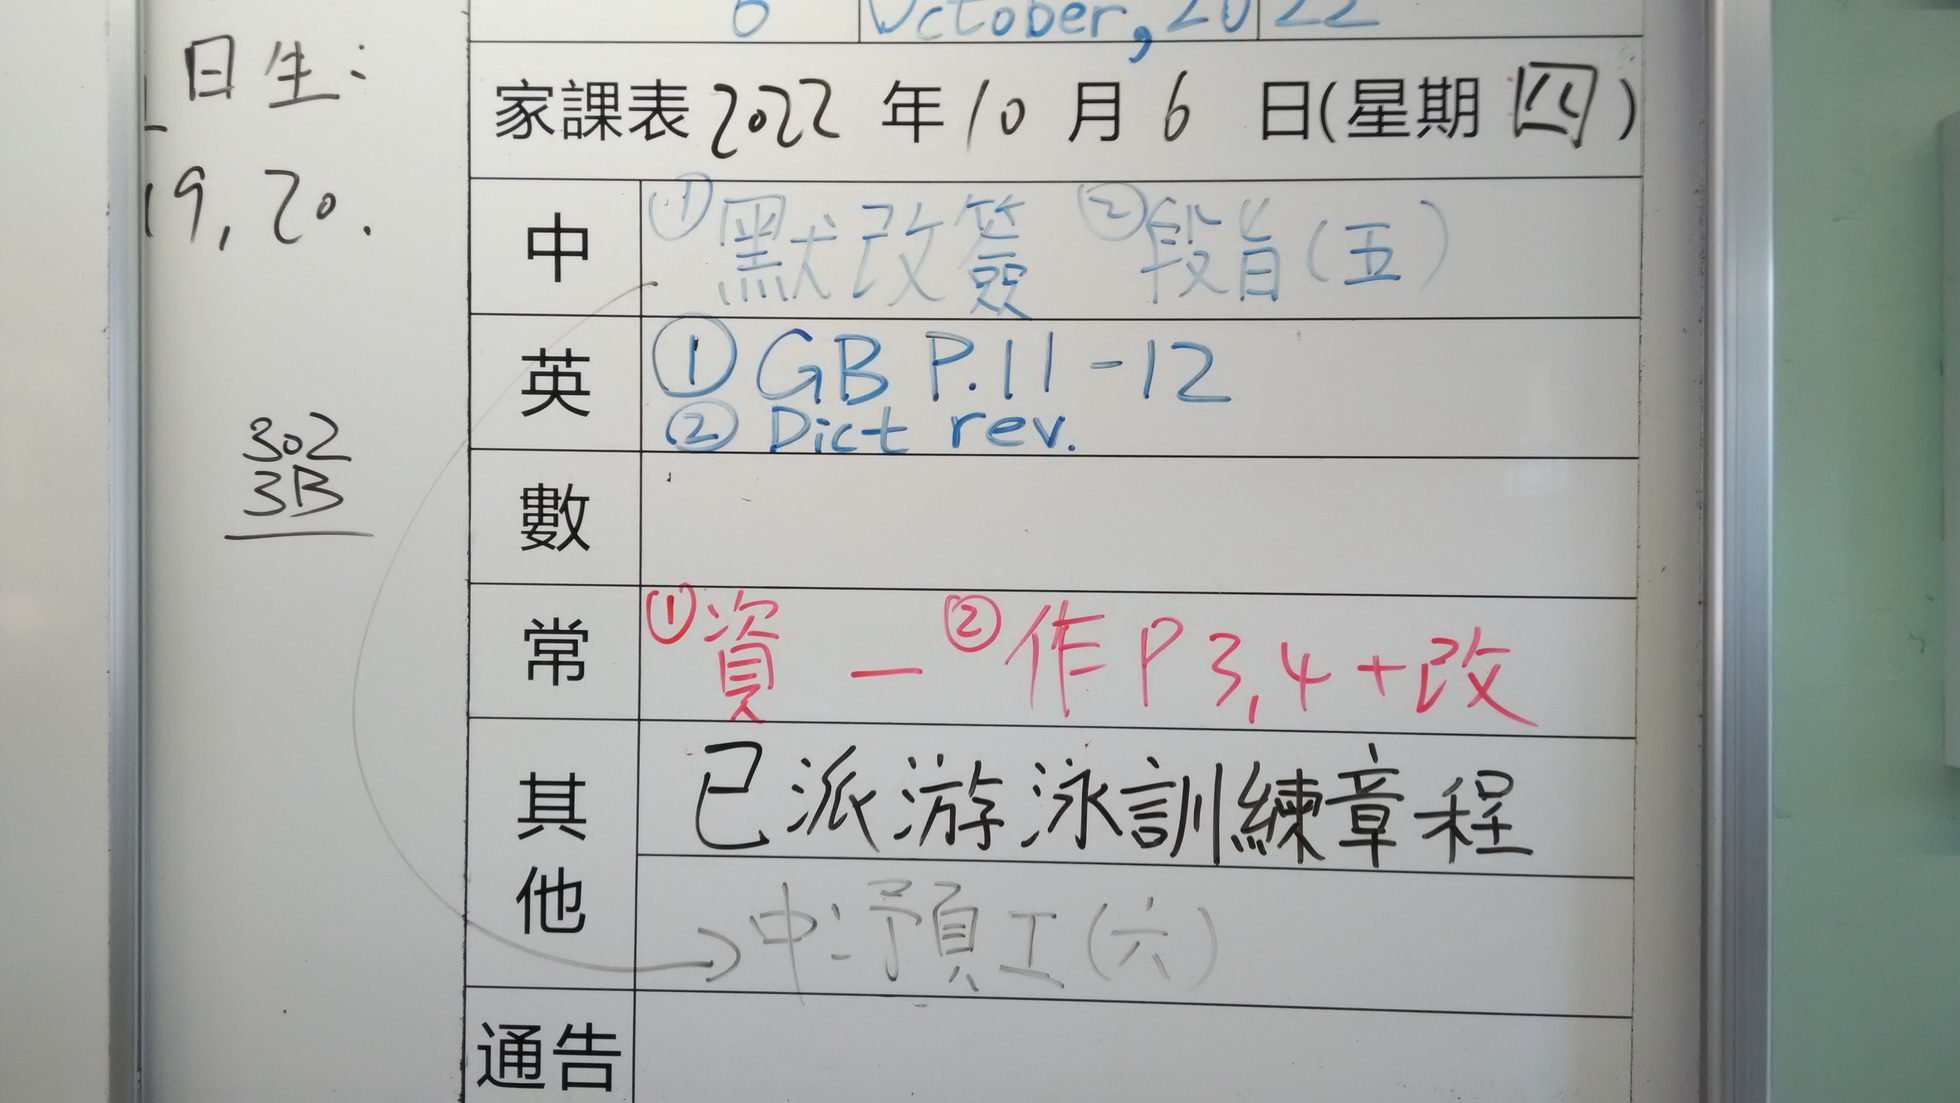 6 October, 2022
日生：
19, 20.
302
3B
家課表 2022 年 10 月 6 日(星期四)
中 ①默改簽 ②段旨(五)
英 ①GB P.11-12
②Dict rev.
數
常 ①資一 ②作P3,4+改
其他 已派游泳訓練章程
→中：預工(六)
通告